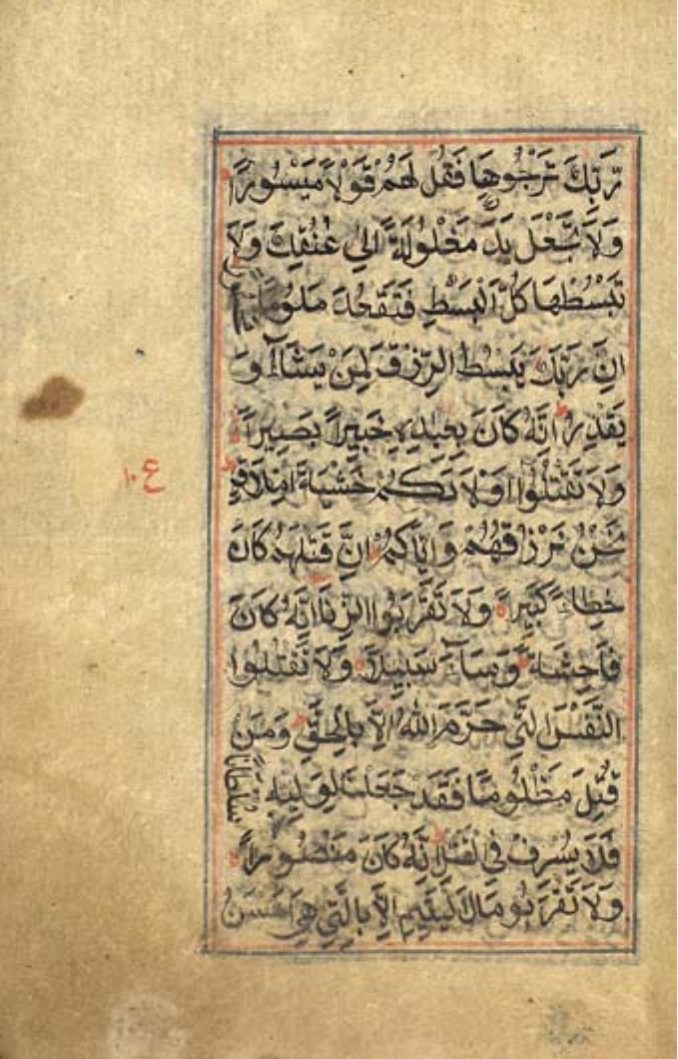 رَّبِّكَ تَرْجُوهَا فَقُلْ لَهُمْ قَوْلًا مَيْسُورًا
وَلَا تَجْعَلْ يَدَ مَغْلُولَةً اِلٰى عُنُقِكَ وَلَا
تَبْسُطْهَا كُلَّ الْبَسْطِ فَتَقْعُدَ مَلُومًا
اِنَّ رَبَّكَ يَبْسُطُ الرِّزْقَ لِمَنْ يَشَآءُ وَ
يَقْدِرُ اِنَّهُ كَانَ بِعِبَادِهِ خَبِيرًا بَصِيرًا
وَلَا تَقْتُلُوا اَوْلَادَكُمْ خَشْيَةَ اِمْلَاقٍ
نَحْنُ نَرْزُقُهُمْ وَاِيَّاكُمْ اِنَّ قَتْلَهُمْ كَانَ
خِطْأً كَبِيرًا وَلَا تَقْرَبُوا الزِّنَا اِنَّهُ كَانَ
فَاحِشَةً وَسَآءَ سَبِيلًا وَلَا تَقْتُلُوا
النَّفْسَ الَّتِي حَرَّمَ اللّٰهُ اِلَّا بِالْحَقِّ وَمَنْ
قُتِلَ مَظْلُومًا فَقَدْ جَعَلْنَا لِوَلِيِّهِ سُلْطَانًا
فَلَا يُسْرِفْ فِي لْقَتْلِ اِنَّهُ كَانَ مَنْصُورًا
وَلَا تَقْرَبُو مَالَ لْيَتِيمِ اِلَّا بِالَّتِي هِيَ اَحْسَنُ
ع ١٠